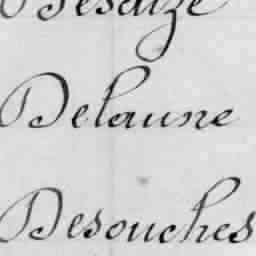 Desaize
Delaune
Desouches